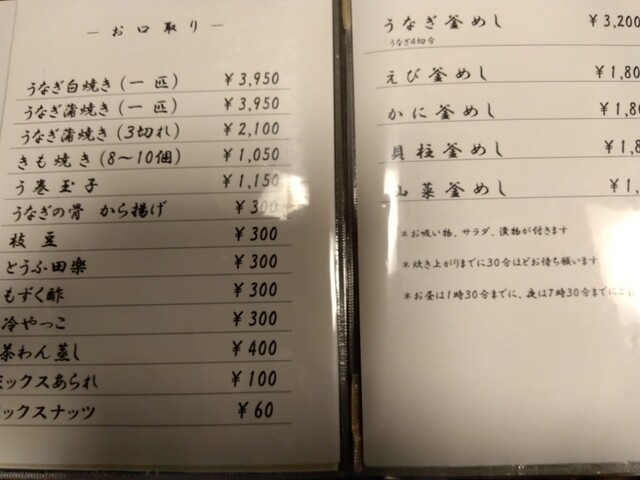 — お口取り —
うなぎ白焼き（一匹） ￥3,950
うなぎ蒲焼き（一匹） ￥3,950
うなぎ蒲焼き（3切れ） ￥2,100
きも焼き（8〜10個） ￥1,050
う巻玉子 ￥1,150
うなぎの骨 から揚げ ￥300
枝豆 ￥300
とうふ田楽 ￥300
もずく酢 ￥300
冷やっこ ￥300
茶わん蒸し ￥400
ミックスあられ ￥100
ックスナッツ ￥60
うなぎ釜めし ￥3,200
うなぎ4切分
えび釜めし ￥1,80
かに釜めし ￥1,80
貝柱釜めし ￥1,8
山菜釜めし ￥1,
＊お吸い物、サラダ、漬物が付きます
＊炊き上がりまでに30分ほどお待ち願います
＊お昼は1時30分までに、夜は7時30分までに